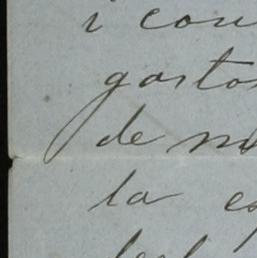 i con
gastos
de m
la es